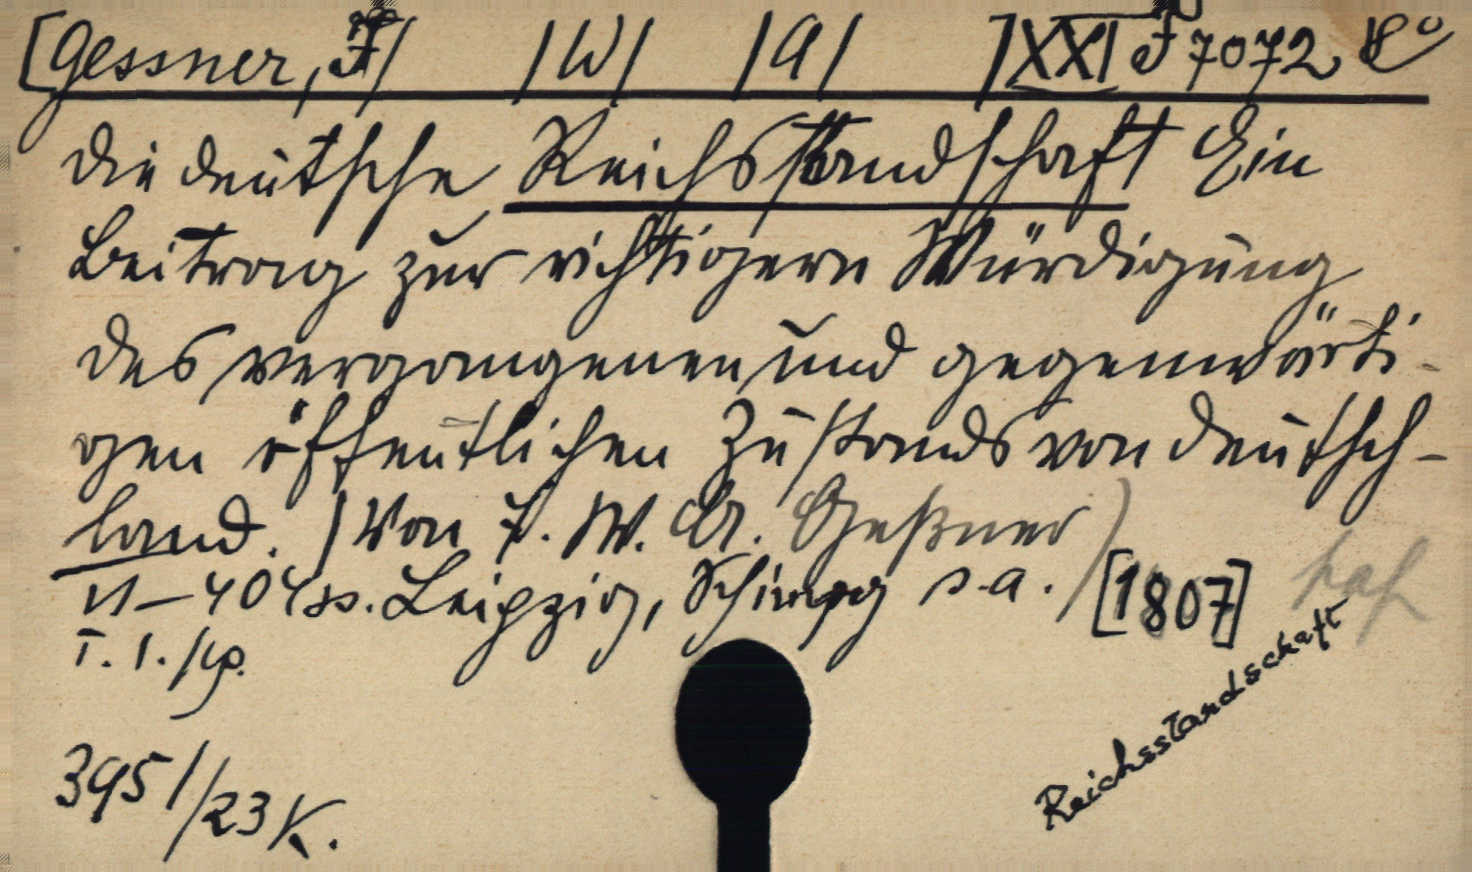 [Gessner, F/ /W/ /A/ /XXI F 7072 8°
Die deutsche Reichsstandschaft Ein
Beitrag zur richtigern Würdigung
des vergangenen und gegenwärti-
gen öffentlichen Zustands von Deutsch-
land. (Von F. W. A. Geßner)
VI-404 ss. Leipzig, Schimpg s.a. [1807]
T. 1.
3951/23 K.
Reichsstandschaft